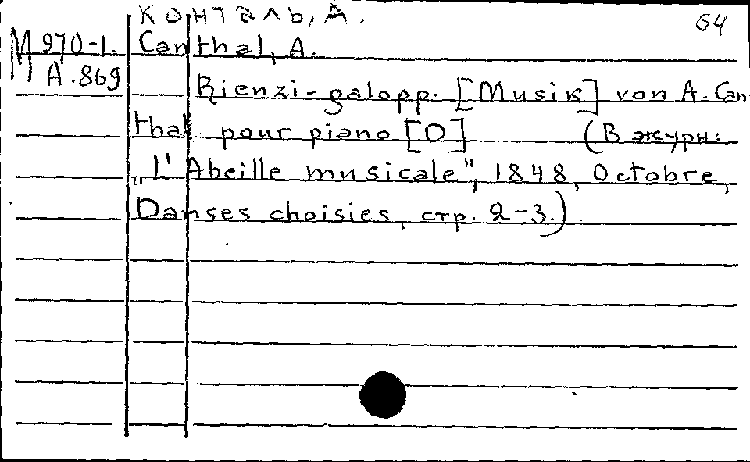 КОНТАЛЬ, А.
64
М 970-1. Canthal, A.
А.869
Rienzi-galopp. [Musik] von A. Can
thal pour piano [O] (В журн:
„L'Abeille musicale", 1848, Octobre,
Danses choisies, стр. 2-3.)